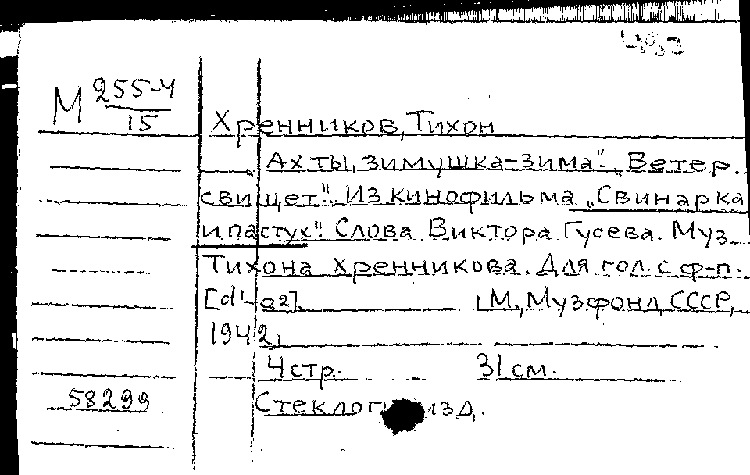 М 255-4
15
Хренников, Тихон
„Ах ты, зимушка-зима". „Ветер
свищет". Из кинофильма „Свинарка
и пастух". Слова Виктора Гусева. Муз.
Тихона Хренникова. Для гол. с ф-п.
М., Музфонд СССР,
1942.
4 стр. 31 см.
58299
изд.